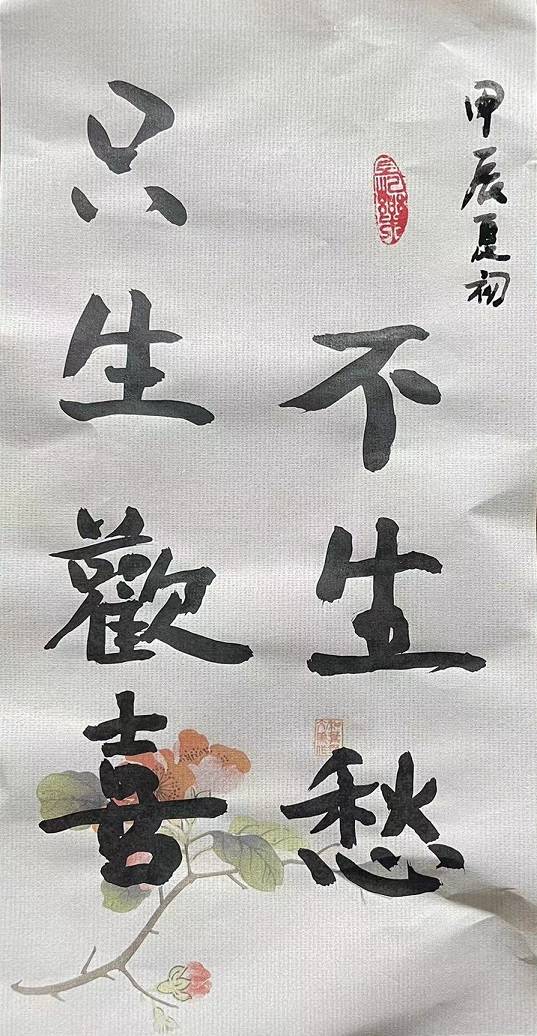 甲辰夏初
不生愁
只生歡喜